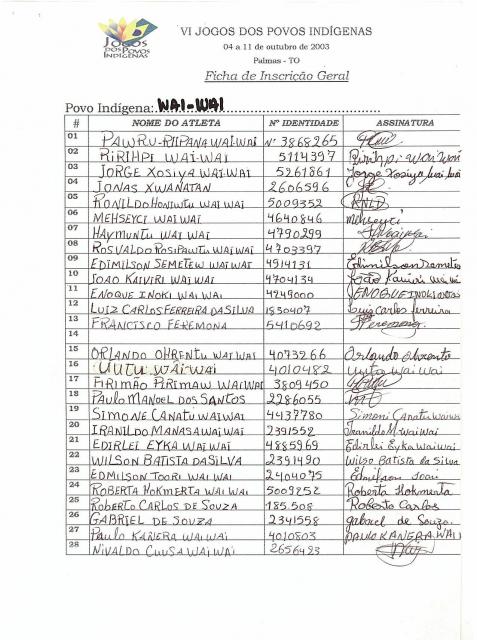 JOGOS DOS POVOS INDÍGENAS
VI JOGOS DOS POVOS INDÍGENAS
04 a 11 de outubro de 2003
Palmas - TO
Ficha de Inscrição Geral
Povo Indígena: WAI-WAI
# NOME DO ATLETA Nº IDENTIDADE ASSINATURA
01 PAWRU-RIIPANA WAI-WAI Nº 3868265
02 RIRIHPI WAI-WAI 5114397 Ririhpi wai wai
03 JORGE XOSIYA WAI-WAI 5261861 Jorge Xosiya Wai Wai
04 JONAS XWANATAN 2606596
05 RONILDO HONIWTU WAI WAI 5009352
06 MEHSEYCI WAI WAI 4640846 mehseyci
07 HAYMUNTU WAI WAI 4790299
08 ROSVALDO ROSIPAWTU WAI WAI 4703397
09 EDIMILSON SEMETEW WAIWAI 4514131 Edimilson Semetew
10 JOAO KAIVIRI WAI WAI 4704134 João Kaiviri Wai Wai
11 ENOQUE INOKI WAI WAI 4249000 ENOQUE INOKI
12 LUIZ CARLOS FERREIRA DA SILVA 1830407 Luiz Carlos Ferreira
13 FRANCISCO FEREMONA 5410692
14
15 ORLANDO OHRENTU WAI WAI 4073266 Orlando Ohrento
16 UUTU WAI-WAI 4010482 wai wai
17 FIRIMÃO PIRIMAW WAIWAI 3809450
18 PAULO MANOEL DOS SANTOS 2286055
19 SIMONE CANATU WAI WAI 4437780 Simoni Canatu
20 IRANILDO MANASA WAI WAI 2391552 Iranildo M. wai wai
21 EDIRLEI EYKA WAI WAI 4885969 Edirlei Eyka wai wai
22 WILSON BATISTA DA SILVA 2391490 Wilso Batista da Silva
23 EDMILSON TOORI WAI WAI 2404075
24 ROBERTA HOKMERTA WAI WAI 5009252 Roberta Hokmerta
25 ROBERTO CARLOS DE SOUZA 185.508 Roberto Carlos
26 GABRIEL DE SOUZA 2341558 gabriel de Souza.
27 PAULO KANERA WAI WAI 4010803 PAULO KANERA WAI
28 NIVALDO CUUSA WAI WAI 2656423